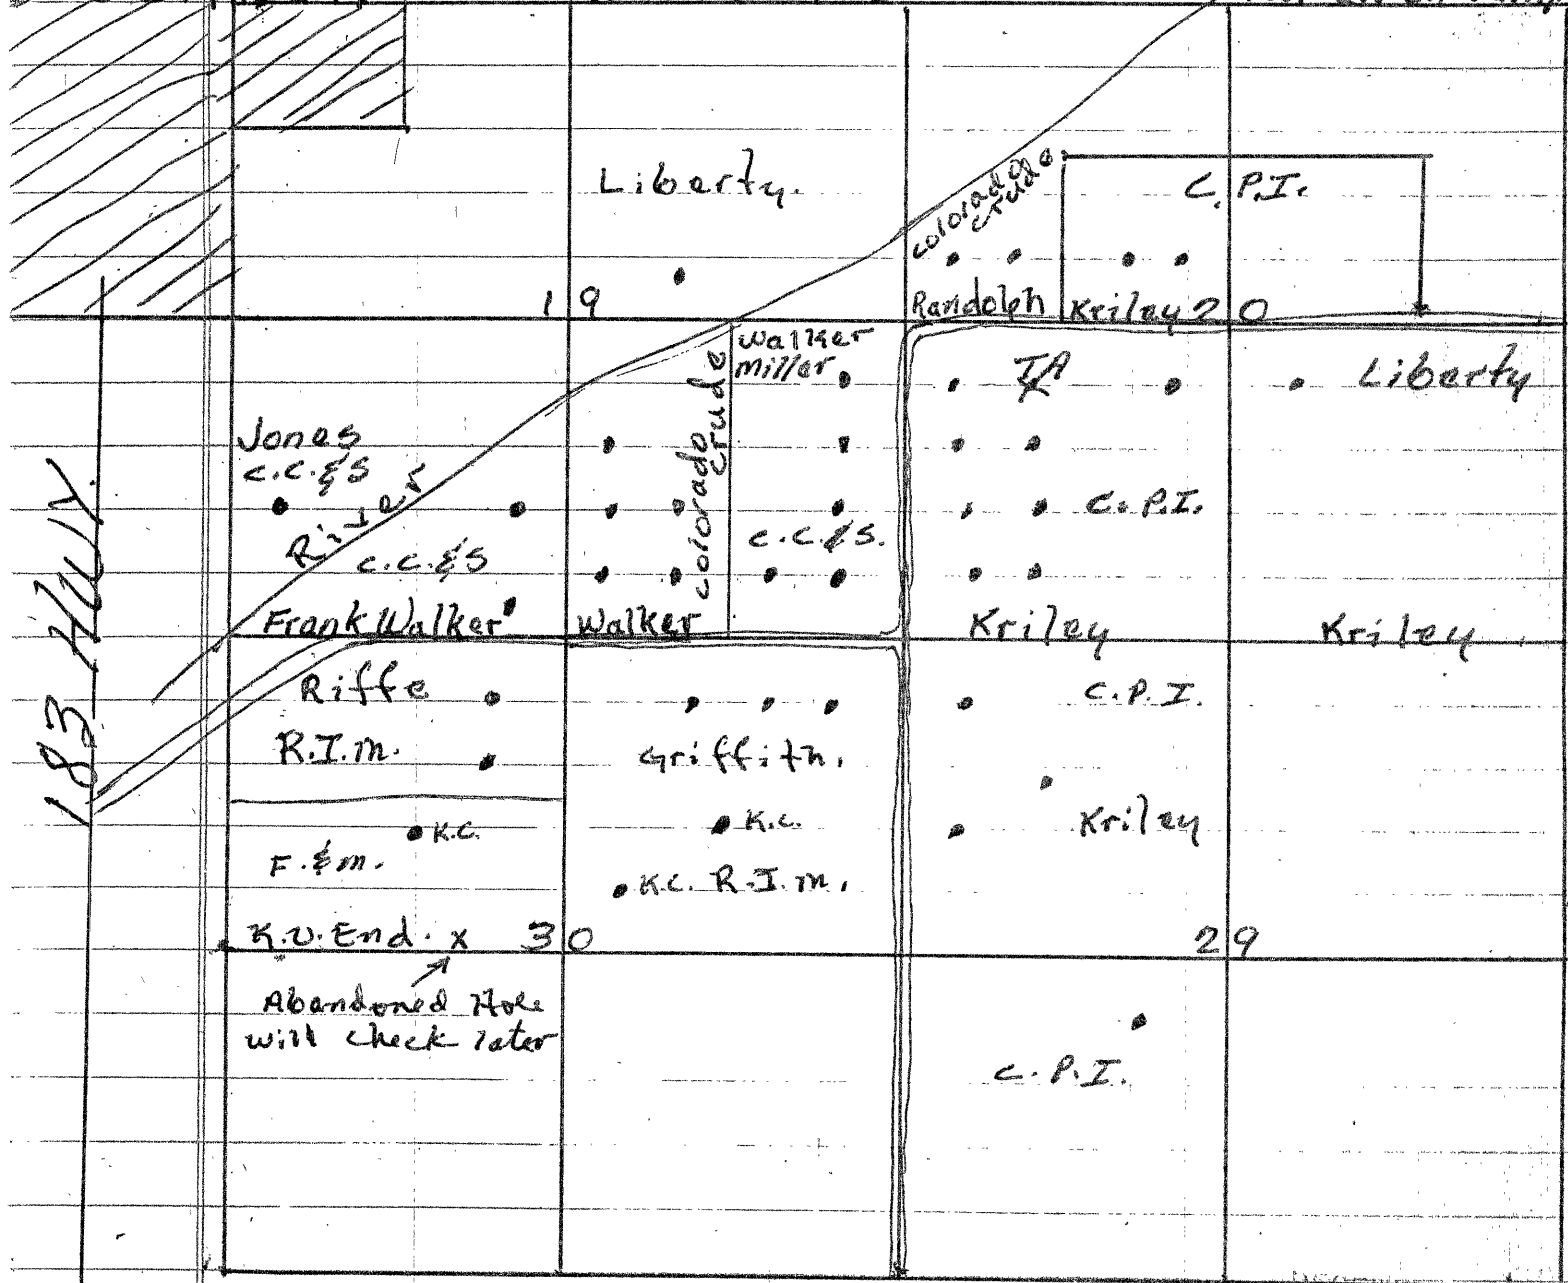 Liberty.
Colorado
crude
C.P.I.
19
Randolph
Kriley
20
Walker
Miller
TA
Liberty
Jones
C.C.&S
River
C.C.&S
Colorado
Crude
C.C.&S.
C.P.I.
Frank Walker
Walker
Kriley
Kriley
183 Hwy.
Riffe
R.I.M.
Griffith.
C.P.I.
K.C.
K.C.
Kriley
F.&M.
K.C. R.I.M.
K.U. End. x
30
29
Abandoned Hole
will check later
C.P.I.